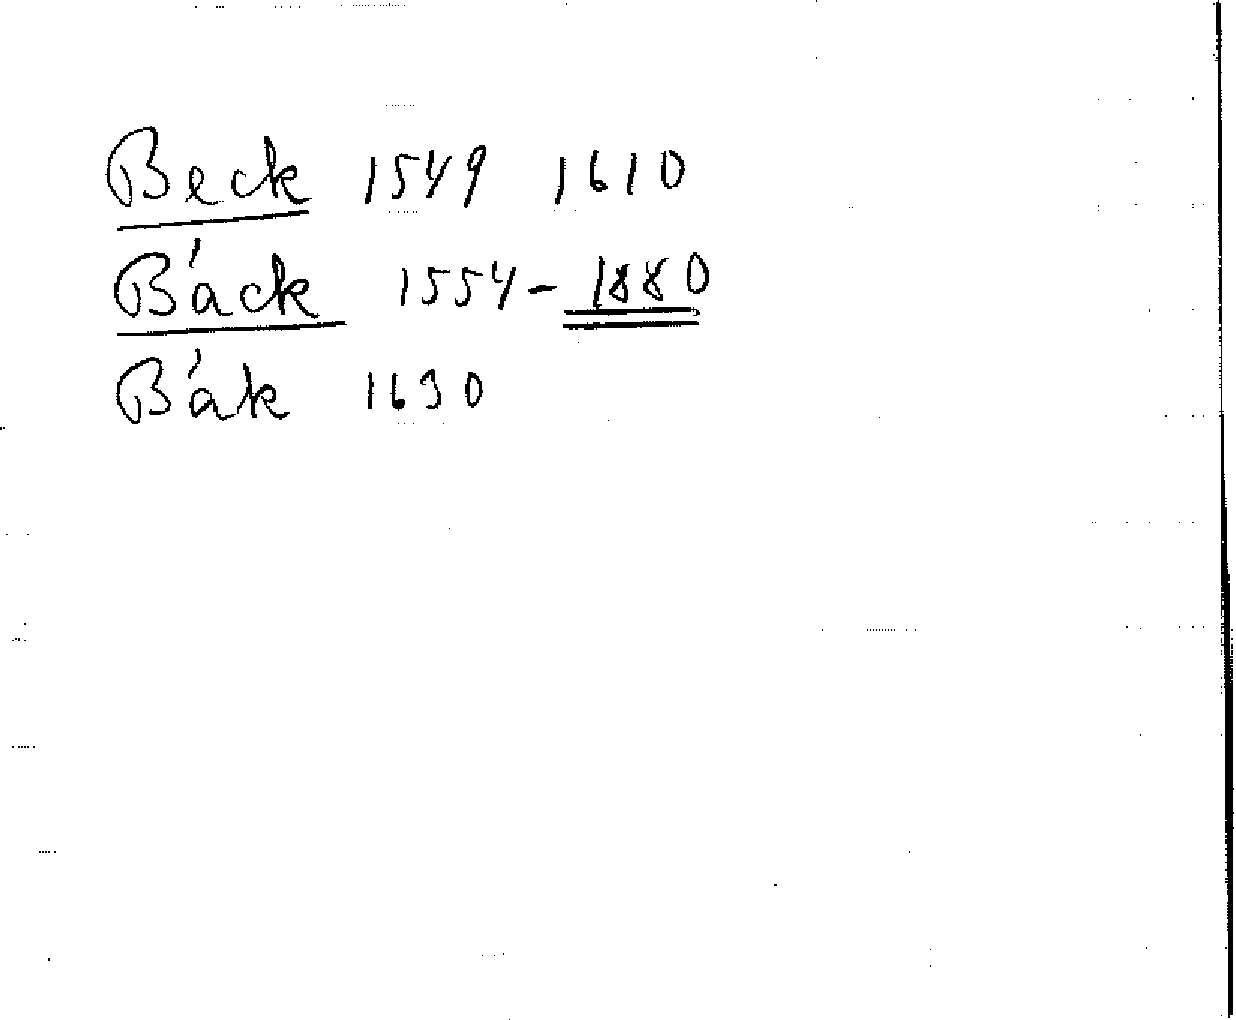 Beck 1549 1610
Báck 1554 - 1880
Bák 1630